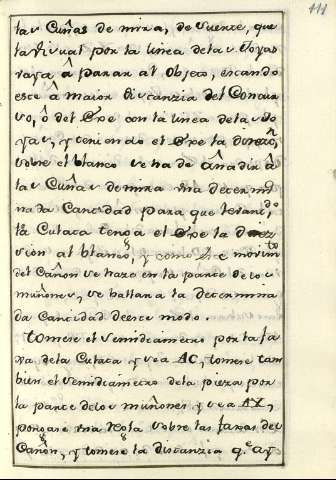 111
las Cuñas de mira, de suerte, que
la visual por la linea de las Joyas
vaya â parar al objeto, estando
este â maior distanzia del Concur
so, ô del Exe con la linea de las Jo
yas, y teniendo el Exe la direcn
sobre el blanco se ha de añadir â
las Cuñas de mira una determi
nada Cantidad para que levando
la Culata tenga el Exe la direz
cion al blanco, y como este movimto
del Cañon se haze en la parte de los
muñones, se hallara la determina
da Cantidad de este modo.
Tomese el semidiametro por la fa
xa de la Culata y sea AC, tomese tam
bien el semidiametro de la pieza por
la parte de los muñones y sea AX,
pongase una Regla sobre las faxas del
Cañon, y tomese la distanzia q.e ay